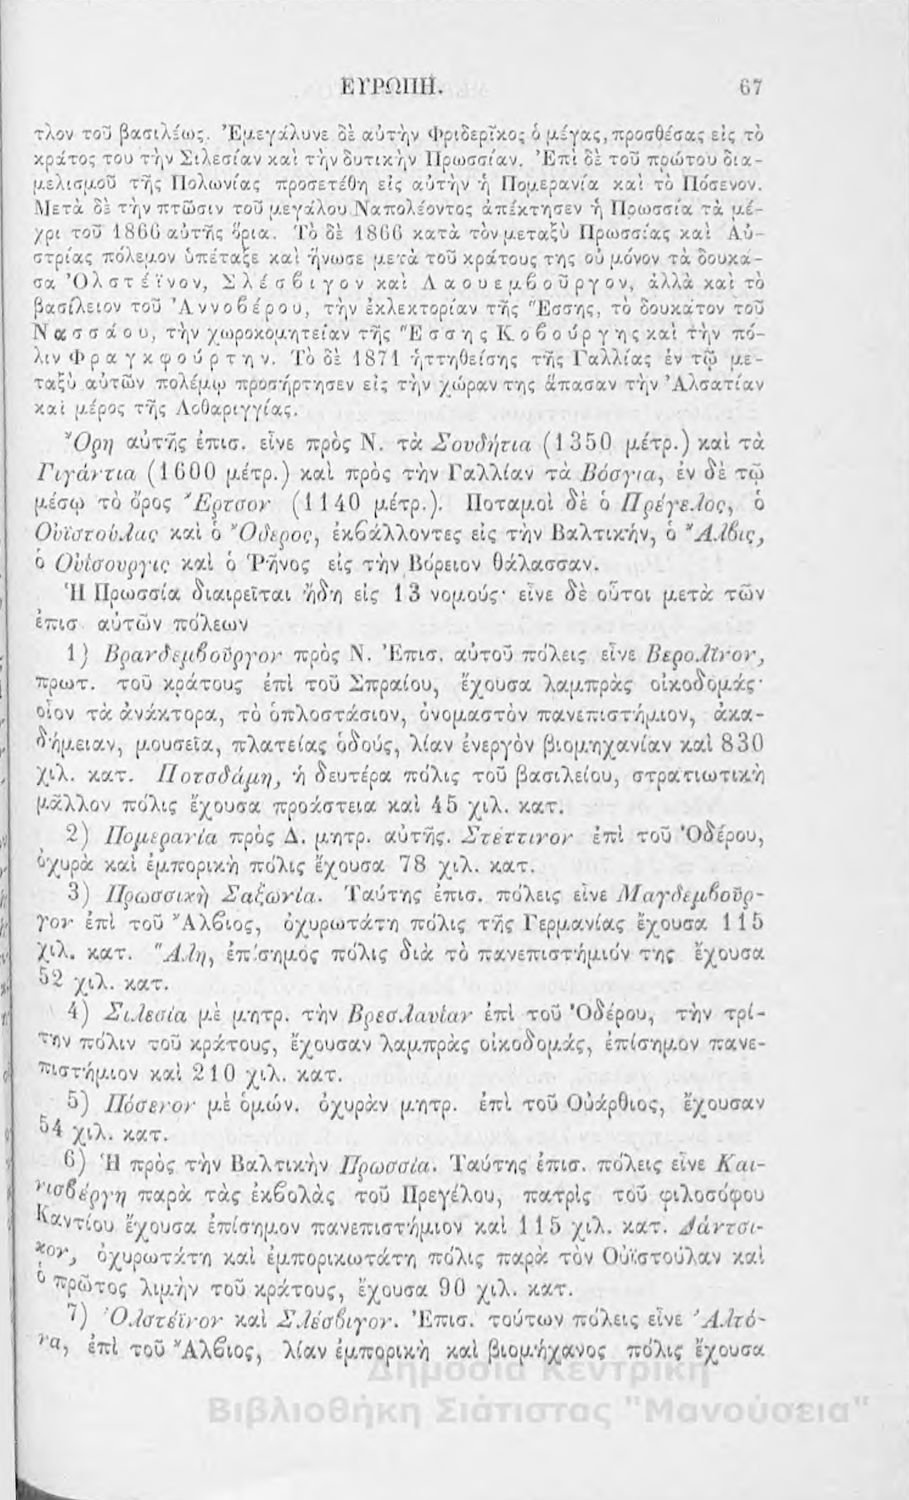 ΕΥΡΩΠΗ. 67
τλον τοῦ βασιλέως. Ἐμεγάλυνε δὲ αὐτὴν Φριδερῖκος ὁ μέγας, προσθέσας εἰς τὸ
κράτος του τὴν Σιλεσίαν καὶ τὴν δυτικὴν Πρωσσίαν. Ἐπὶ δὲ τοῦ πρώτου δια-
μελισμοῦ τῆς Πολωνίας προσετέθη εἰς αὐτὴν ἡ Πομερανία καὶ τὸ Πόσενον.
Μετὰ δὲ τὴν πτῶσιν τοῦ μεγάλου Ναπολέοντος ἀπέκτησεν ἡ Πρωσσία τὰ μέ-
χρι τοῦ 1866 αὐτῆς ὅρια. Τὸ δὲ 1866 κατὰ τὸν μεταξὺ Πρωσσίας καὶ Αὐ-
στρίας πόλεμον ὑπέταξε καὶ ἥνωσε μετὰ τοῦ κράτους της οὐ μόνον τὰ δουκά-
σα Ὁλστέϊνον, Σλέσβιγον καὶ Λαουεμβοῦργον, ἀλλὰ καὶ τὸ
βασίλειον τοῦ Ἀννοβέρου, τὴν ἐκλεκτορίαν τῆς Ἔσσης, τὸ δουκάτον τοῦ
Νασσάου, τὴν χωροκομητείαν τῆς Ἔσσης Κοβούργης καὶ τὴν πό-
λιν Φραγκφούρτην. Τὸ δὲ 1871 ἡττηθείσης τῆς Γαλλίας ἐν τῷ με-
ταξὺ αὐτῶν πολέμῳ προσήρτησεν εἰς τὴν χώραν της ἅπασαν τὴν Ἀλσατίαν
καὶ μέρος τῆς Λοθαριγγίας.
Ὄρη αὐτῆς ἐπισ. εἶνε πρὸς Ν. τὰ Σουδήτια (1350 μέτρ.) καὶ τὰ
Γιγάντια (1600 μέτρ.) καὶ πρὸς τὴν Γαλλίαν τὰ Βόσγια, ἐν δὲ τῷ
μέσῳ τὸ ὄρος Ἔρτσον (1140 μέτρ.). Ποταμοὶ δὲ ὁ Πρέγελος, ὁ
Οὐϊστούλας καὶ ὁ Ὄδερος, ἐκβάλλοντες εἰς τὴν Βαλτικήν, ὁ Ἄλβις,
ὁ Οὐίσουργις καὶ ὁ Ῥῆνος εἰς τὴν Βόρειον θάλασσαν.
Ἡ Πρωσσία διαιρεῖται ἤδη εἰς 13 νομούς· εἶνε δὲ οὗτοι μετὰ τῶν
ἐπισ αὐτῶν πόλεων
1) Βρανδεμβοῦργον πρὸς Ν. Ἐπισ. αὐτοῦ πόλεις εἶνε Βερολῖνον,
πρωτ. τοῦ κράτους ἐπὶ τοῦ Σπραίου, ἔχουσα λαμπρὰς οἰκοδομάς·
οἷον τὰ ἀνάκτορα, τὸ ὁπλοστάσιον, ὀνομαστὸν πανεπιστήμιον, ἀκα-
δήμειαν, μουσεῖα, πλατείας ὁδούς, λίαν ἐνεργὸν βιομηχανίαν καὶ 830
χιλ. κατ. Ποτσδάμη, ἡ δευτέρα πόλις τοῦ βασιλείου, στρατιωτικὴ
μᾶλλον πόλις ἔχουσα προάστεια καὶ 45 χιλ. κατ.
2) Πομερανία πρὸς Δ. μητρ. αὐτῆς. Στέττινον ἐπὶ τοῦ Ὀδέρου,
ὀχυρὰ καὶ ἐμπορικὴ πόλις ἔχουσα 78 χιλ. κατ.
3) Πρωσσικὴ Σαξωνία. Ταύτης ἐπισ. πόλεις εἶνε Μαγδεμβοῦρ-
γον ἐπὶ τοῦ Ἄλβιος, ὀχυρωτάτη πόλις τῆς Γερμανίας ἔχουσα 115
χιλ. κατ. Ἅλη, ἐπίσημος πόλις διὰ τὸ πανεπιστήμιόν της ἔχουσα
52 χιλ. κατ.
4) Σιλεσία μὲ μητρ. τὴν Βρεσλαυΐαν ἐπὶ τοῦ Ὀδέρου, τὴν τρί-
την πόλιν τοῦ κράτους, ἔχουσαν λαμπρὰς οἰκοδομάς, ἐπίσημον πανε-
πιστήμιον καὶ 210 χιλ. κατ.
5) Πόσενον μὲ ὁμών. ὀχυρὰν μητρ. ἐπὶ τοῦ Οὐάρθιος, ἔχουσαν
54 χιλ. κατ.
6) Ἡ πρὸς τὴν Βαλτικὴν Πρωσσία. Ταύτης ἐπισ. πόλεις εἶνε Και-
νισβέργη παρὰ τὰς ἐκβολὰς τοῦ Πρεγέλου, πατρὶς τοῦ φιλοσόφου
Καντίου ἔχουσα ἐπίσημον πανεπιστήμιον καὶ 115 χιλ. κατ. Δάντσι-
κον, ὀχυρωτάτη καὶ ἐμπορικωτάτη πόλις παρὰ τὸν Οὐϊστούλαν καὶ
ὁ πρῶτος λιμὴν τοῦ κράτους, ἔχουσα 90 χιλ. κατ.
7) Ὁλστέϊνον καὶ Σλέσβιγον. Ἐπισ. τούτων πόλεις εἶνε Ἀλτό-
να, ἐπὶ τοῦ Ἄλβιος, λίαν ἐμπορικὴ καὶ βιομήχανος πόλις ἔχουσα
Δημόσια Κεντρική
Βιβλιοθήκη Σιάτιστας "Μανούσεια"